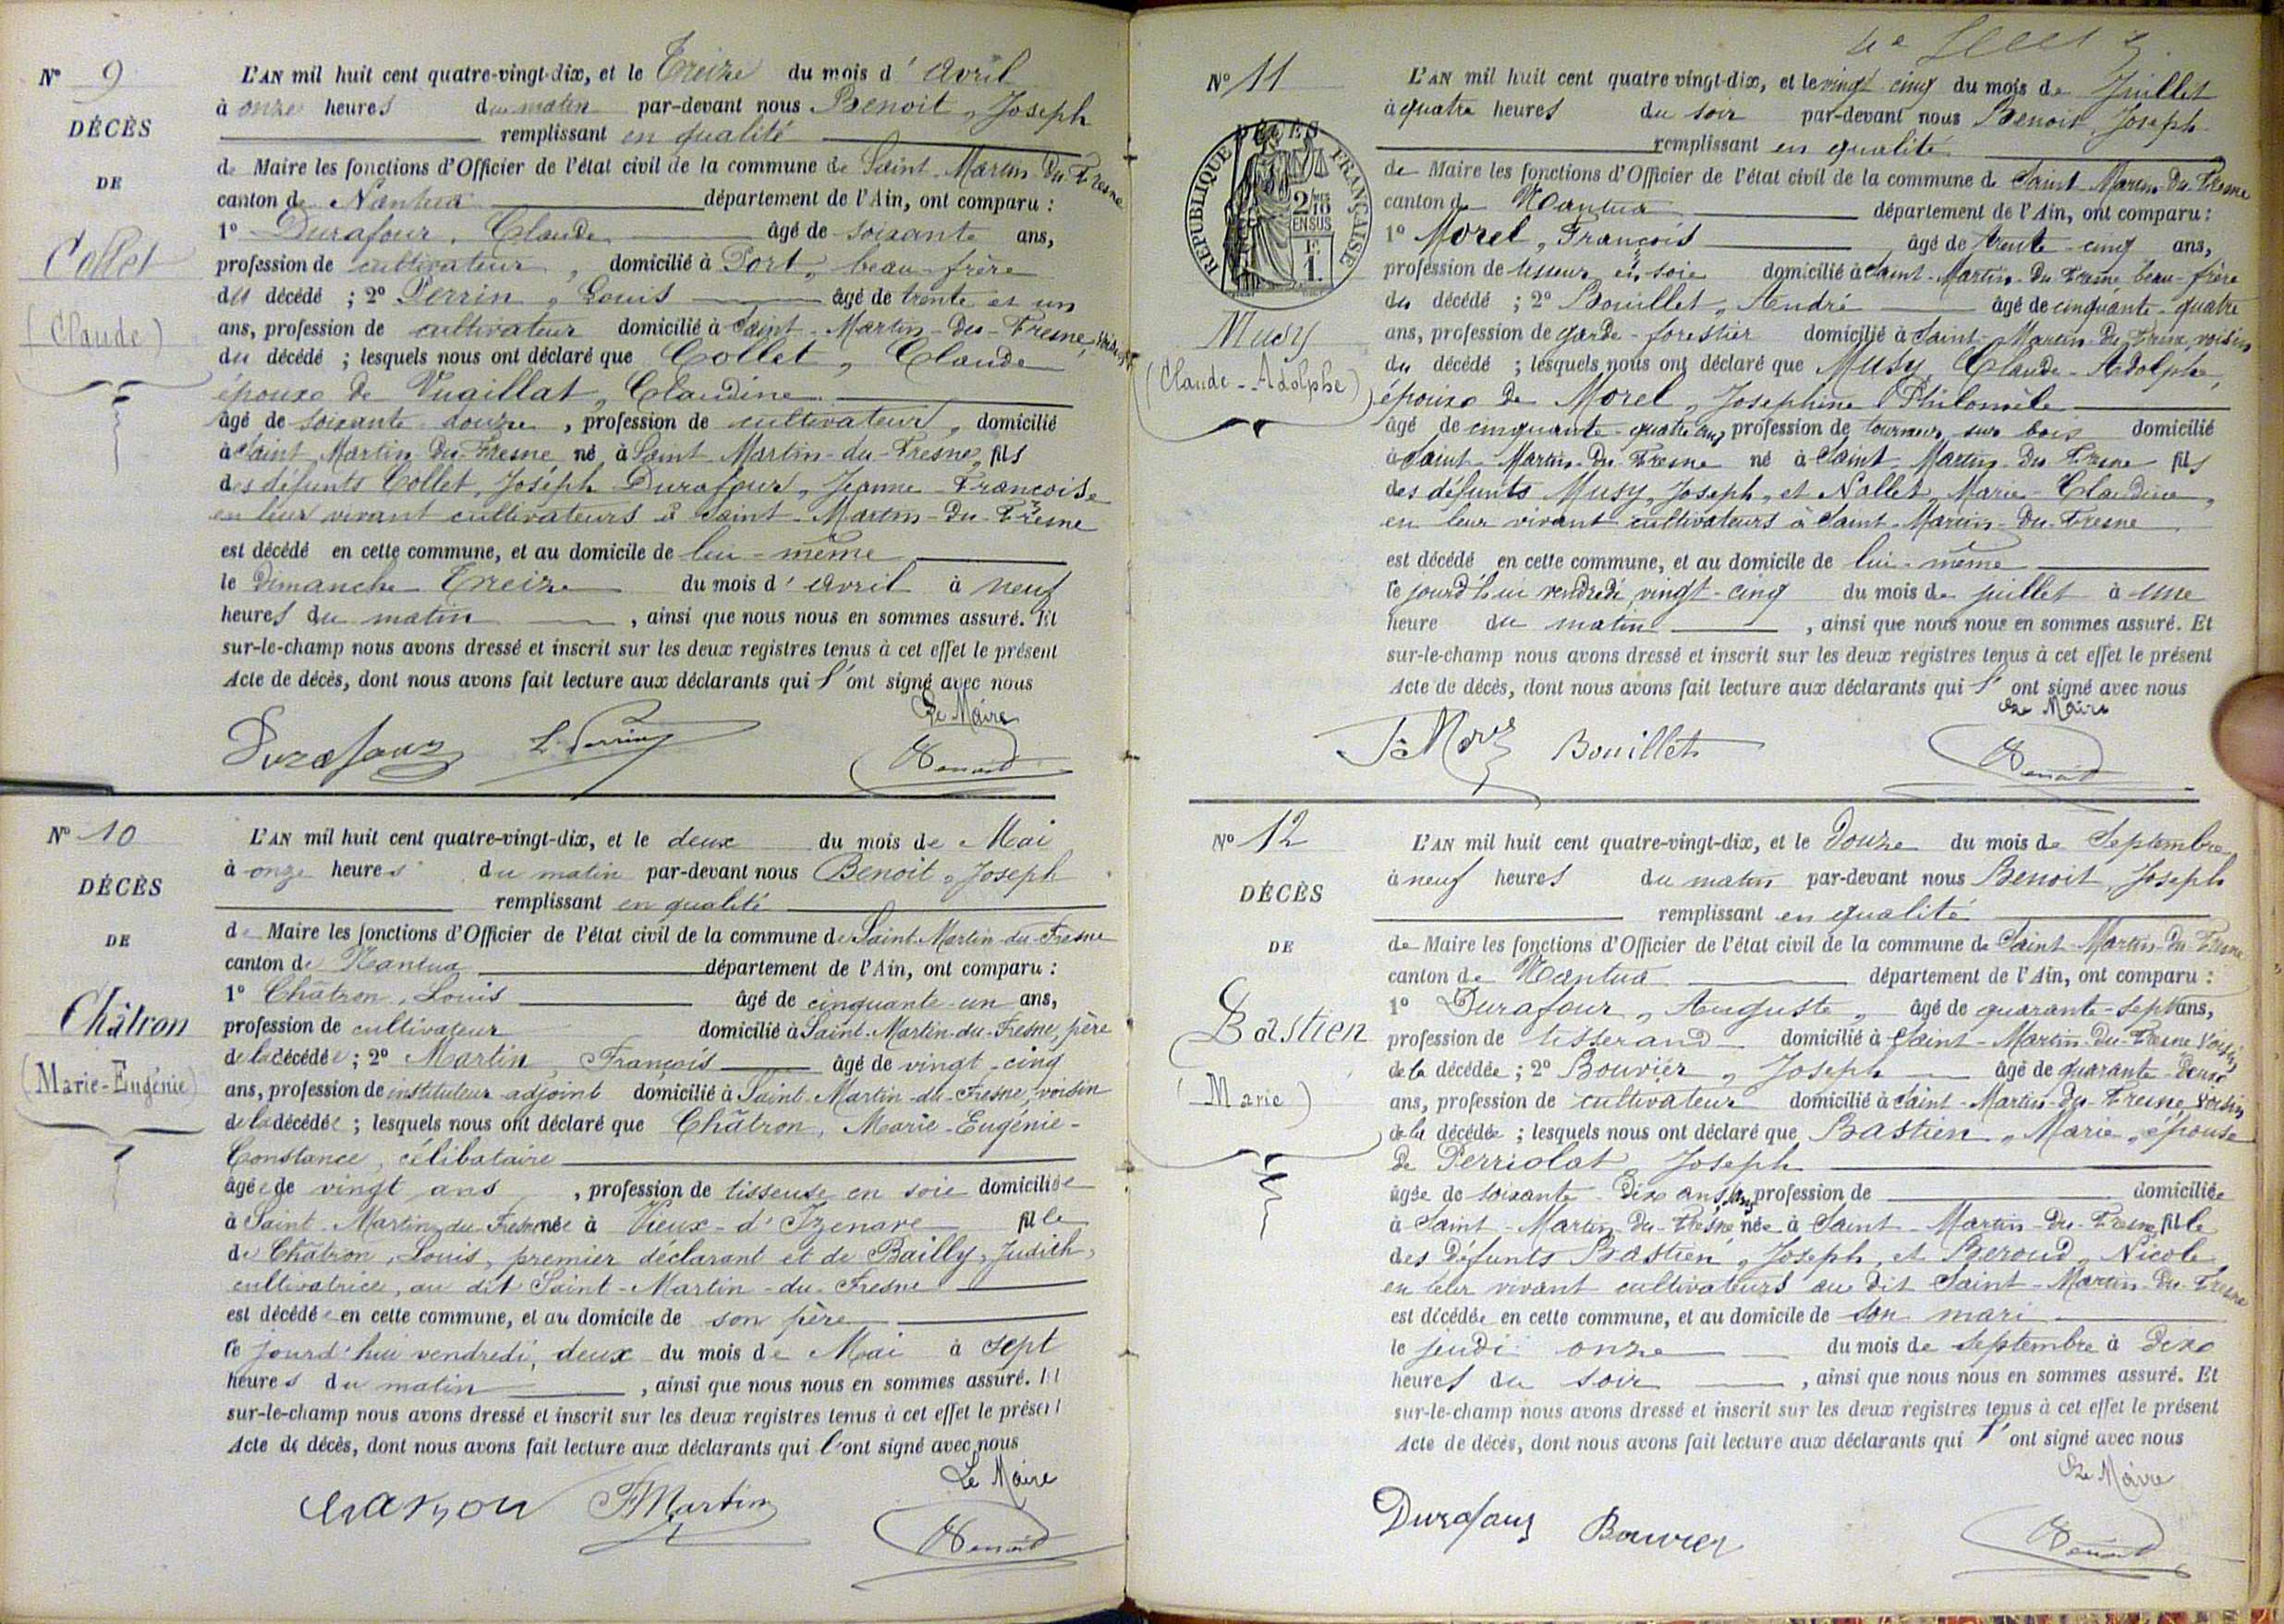 N° 9
DÉCÈS
DE
Collet
(Claude)
L'AN mil huit cent quatre-vingt-dix, et le Treize du mois d'Avril
à onze heures du matin par-devant nous Benoit, Joseph
remplissant en qualité
de Maire les fonctions d'Officier de l'état civil de la commune de Saint-Martin-du-Fresne
canton de Nantua département de l'Ain, ont comparu :
1° Durafour, Claude âgé de soixante ans,
profession de cultivateur, domicilié à Port, beau-frère
du décédé ; 2° Perrin, Louis âgé de trente et un
ans, profession de cultivateur domicilié à Saint-Martin-du-Fresne, voisin
du décédé ; lesquels nous ont déclaré que Collet, Claude
époux de Vuaillat, Claudine
âgé de soixante douze, profession de cultivateur, domicilié
à Saint Martin-du-Fresne né à Saint-Martin-du-Fresne, fils
des défunts Collet, Joseph Durafour, Jeanne-Françoise
en leur vivant cultivateurs à Saint-Martin-du-Fresne
est décédé en cette commune, et au domicile de lui-même
le Dimanche Treize du mois d'avril à neuf
heures du matin, ainsi que nous nous en sommes assuré. Et
sur-le-champ nous avons dressé et inscrit sur les deux registres tenus à cet effet le présent
Acte de décès, dont nous avons fait lecture aux déclarants qui l'ont signé avec nous
Le Maire
Durafour L. Perrin Benoit
N° 10
DÉCÈS
DE
Châtron
(Marie-Eugénie)
L'AN mil huit cent quatre-vingt-dix, et le deux du mois de Mai
à onze heures du matin par-devant nous Benoit, Joseph
remplissant en qualité
de Maire les fonctions d'Officier de l'état civil de la commune de Saint-Martin-du-Fresne
canton de Nantua département de l'Ain, ont comparu :
1° Châtron, Louis âgé de cinquante-un ans,
profession de cultivateur domicilié à Saint-Martin-du-Fresne, père
de la décédée ; 2° Martin, François âgé de vingt-cinq
ans, profession de instituteur adjoint domicilié à Saint-Martin-du-Fresne, voisin
de la décédée ; lesquels nous ont déclaré que Châtron, Marie-Eugénie-
Constance, célibataire
âgée de vingt ans, profession de tisseuse en soie domiciliée
à Saint-Martin-du-Fresne née à Vieux-d'Izenave fille
de Châtron, Louis, premier déclarant et de Bailly, Judith,
cultivatrice, au dit Saint-Martin-du-Fresne
est décédée en cette commune, et au domicile de son père
le jourd'hui vendredi, deux du mois de Mai à sept
heures du matin, ainsi que nous nous en sommes assuré. Et
sur-le-champ nous avons dressé et inscrit sur les deux registres tenus à cet effet le présent
Acte de décès, dont nous avons fait lecture aux déclarants qui l'ont signé avec nous
Le Maire
Chatron F Martin Benoit
N° 11
DÉCÈS
RÉPUBLIQUE FRANÇAISE
2/10 EN SUS
1 F
Musy
(Claude-Adolphe)
L'AN mil huit cent quatre vingt-dix, et le vingt-cinq du mois de Juillet
à quatre heures du soir par-devant nous Benoit, Joseph
remplissant en qualité
de Maire les fonctions d'Officier de l'état civil de la commune de Saint Martin-du-Fresne
canton de Nantua département de l'Ain, ont comparu :
1° Morel, François âgé de trente-cinq ans,
profession de tisseur en soie domicilié à Saint-Martin-du-Fresne, beau-frère
du décédé ; 2° Bouillet, André âgé de cinquante-quatre
ans, profession de garde-forestier domicilié à Saint-Martin-du-Fresne, voisin
du décédé ; lesquels nous ont déclaré que Musy, Claude-Adolphe,
époux de Morel, Josephine Philomèle
âgé de cinquante-quatre ans, profession de tourneur sur bois domicilié
à Saint-Martin-du-Fresne né à Saint-Martin-du-Fresne fils
des défunts Musy, Joseph, et Nallet, Marie-Claudine,
en leur vivant cultivateurs à Saint-Martin-du-Fresne
est décédé en cette commune, et au domicile de lui-même
le jourd'hui vendredi vingt-cinq du mois de juillet à une
heure du matin, ainsi que nous nous en sommes assuré. Et
sur-le-champ nous avons dressé et inscrit sur les deux registres tenus à cet effet le présent
Acte de décès, dont nous avons fait lecture aux déclarants qui l'ont signé avec nous
Le Maire
Bouillet Benoit
N° 12
DÉCÈS
DE
Bastien
(Marie)
L'AN mil huit cent quatre-vingt-dix, et le Douze du mois de Septembre
à neuf heures du matin par-devant nous Benoit, Joseph
remplissant en qualité
de Maire les fonctions d'Officier de l'état civil de la commune de Saint-Martin-du-Fresne
canton de Nantua département de l'Ain, ont comparu :
1° Durafour, Auguste, âgé de quarante-sept ans,
profession de tisserand domicilié à Saint-Martin-du-Fresne voisin
de la décédée ; 2° Bouvier, Joseph âgé de quarante-deux
ans, profession de cultivateur domicilié à Saint-Martin-du-Fresne, voisin
de la décédée ; lesquels nous ont déclaré que Bastien, Marie, épouse
de Perriolat, Joseph
âgée de soixante-dix ans, sans profession de domiciliée
à Saint-Martin-du-Fresne née à Saint-Martin-du-Fresne, fille
des défunts Bastien, Joseph, et Beroud, Nicole
en leur vivant cultivateurs au dit Saint-Martin-du-Fresne
est décédée en cette commune, et au domicile de son mari
le jeudi onze du mois de septembre à dix
heures du soir, ainsi que nous nous en sommes assuré. Et
sur-le-champ nous avons dressé et inscrit sur les deux registres tenus à cet effet le présent
Acte de décès, dont nous avons fait lecture aux déclarants qui l'ont signé avec nous
Le Maire
Durafour Bouvier Benoit